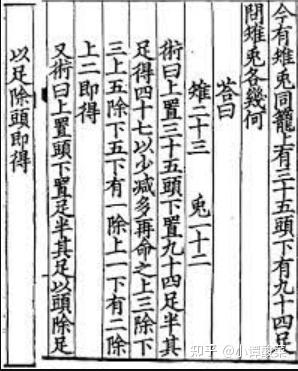 今有雉兔同籠上有三十五頭下有九十四足
問雉兔各幾何
荅曰
雉二十三 兔一十二
術曰上置三十五頭下置九十四足半其
足得四十七以少減多再命之上三除下
三上五除下五下有一除上一下有二除
上二即得
又術曰上置頭下置足半其足以頭除足
以足除頭即得
知乎 @小谭酸菜